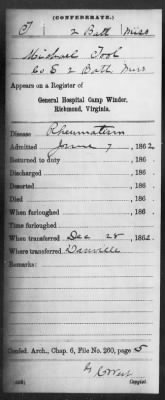 (CONFEDERATE.)
T 2 Batt Miss
Michael Tool
Co E 2 Batt Miss
Appears on a Register of
General Hospital Camp Winder,
Richmond, Virginia.
Disease Rheumatism
Admitted June 7, 1862
Returned to duty , 186
Discharged , 186
Deserted , 186
Died , 186
When furloughed , 186
Time furloughed
When transferred Dec 28, 1862.
Where transferred Danville
Remarks:
Confed. Arch., Chap. 6, File No. 260, page 5
Copyist.